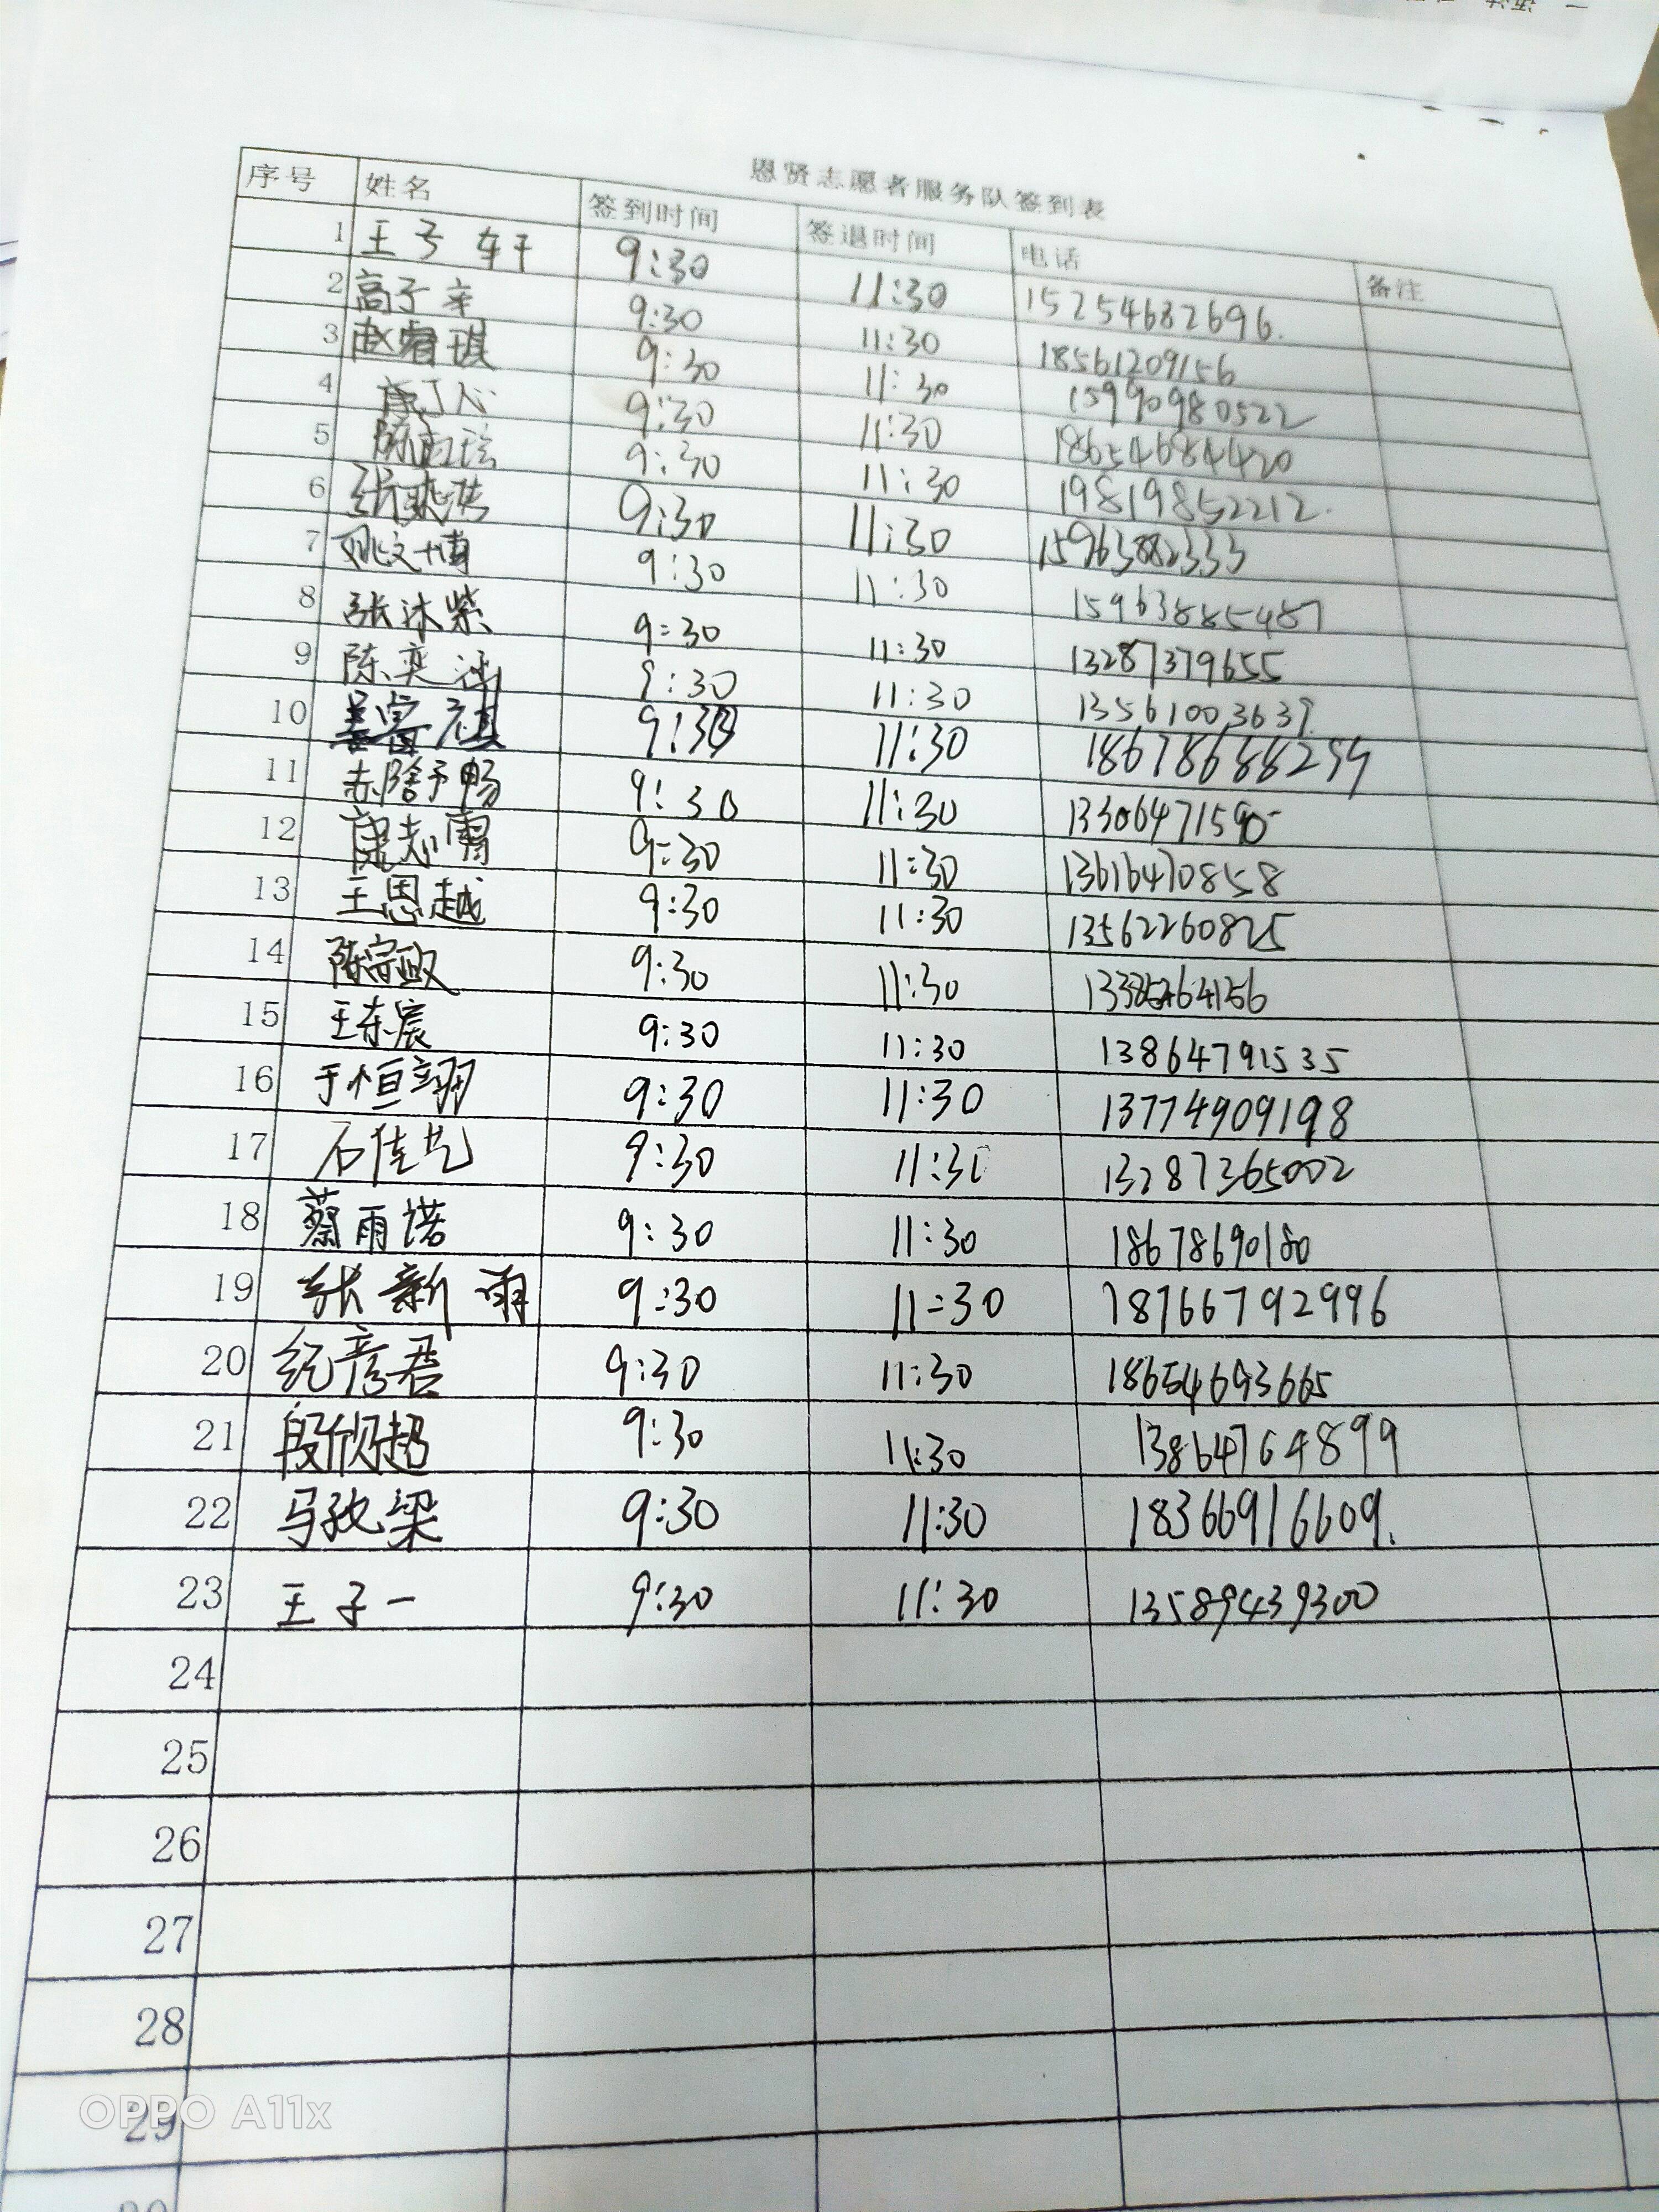 恩贤志愿者服务队签到表
序号 姓名 签到时间 签退时间 电话 备注
1 王子轩 9:30 11:30 15254682696.
2 高子辛 9:30 11:30 18561209156
3 赵睿琪 9:30 11:30 15990980522
4 9:30 11:30 18654684420
5 陈雨 9:30 11:30 19819852212.
6 9:30 11:30 15963882333
7 姚文博 9:30 11:30 15963885487
8 张沐紫 9:30 11:30 13287379655
9 陈奕涵 9:30 11:30 13561003639
10 9:30 11:30 18678688259
11 9:30 11:30
12 9:30 11:30 13616470858
13 王恩越 9:30 11:30 13562260825
14 陈宗政 9:30 11:30
15 王东宸 9:30 11:30 13864791535
16 于恒翊 9:30 11:30 13774909198
17 石佳艺 9:30 11:30 13287365002
18 蔡雨诺 9:30 11:30 18678690180
19 张新雨 9:30 11:30 18766792996
20 纪彦君 9:30 11:30 18654693665
21 段欣超 9:30 11:30 13864764899
22 马孜梁 9:30 11:30 18366916609.
23 王子一 9:30 11:30 13589439300
24
25
26
27
28
29
OPPO A11x